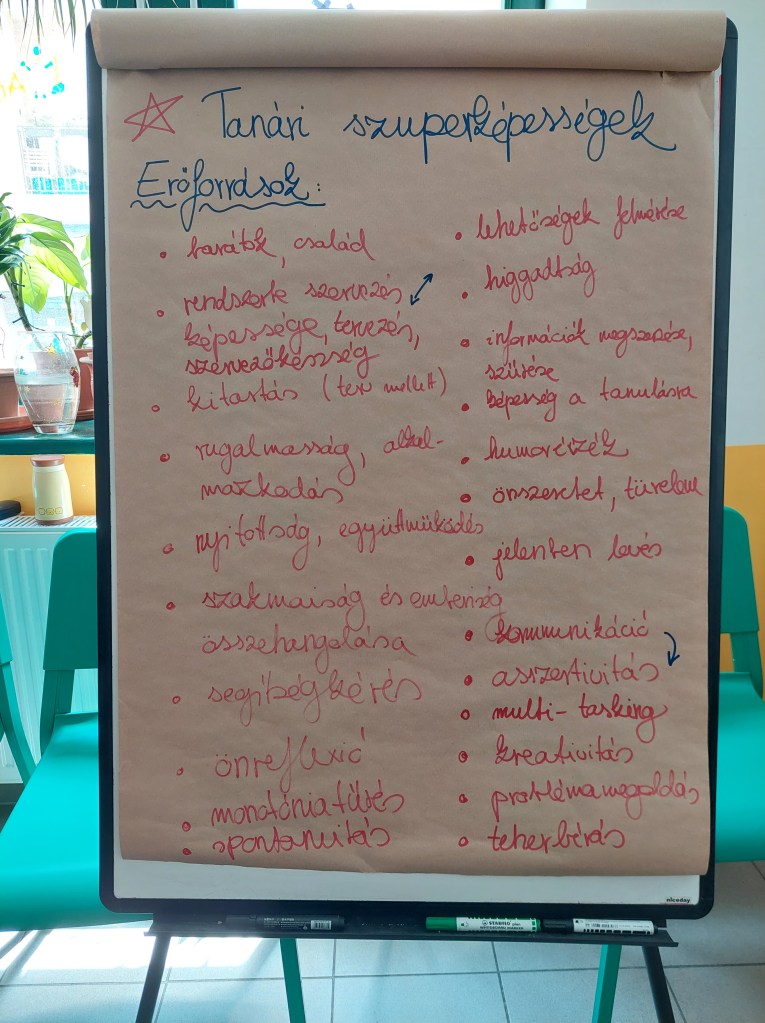 Tanári szuperképességek
Erőforrások:
• barátok, család
• rendszerbe szervezés
képessége, tervezés,
szervezőkészség
• kitartás (terv mellett)
• rugalmasság, alkal-
mazkodás
• nyitottság, együttműködés
• szakmaiság és emberség
összehangolása
• segítségkérés
• önreflexió
• monotóniatűrés
• spontanuitás
• lehetőségek felmérése
• higgadtság
• információk megszerzése,
szűrése
• képesség a tanulásra
• humorérzék
• önszeretet, türelem
• jelenben levés
• kommunikáció
• asszertivitás
• multi-tasking
• kreativitás
• problémamegoldás
• teherbírás
niceday